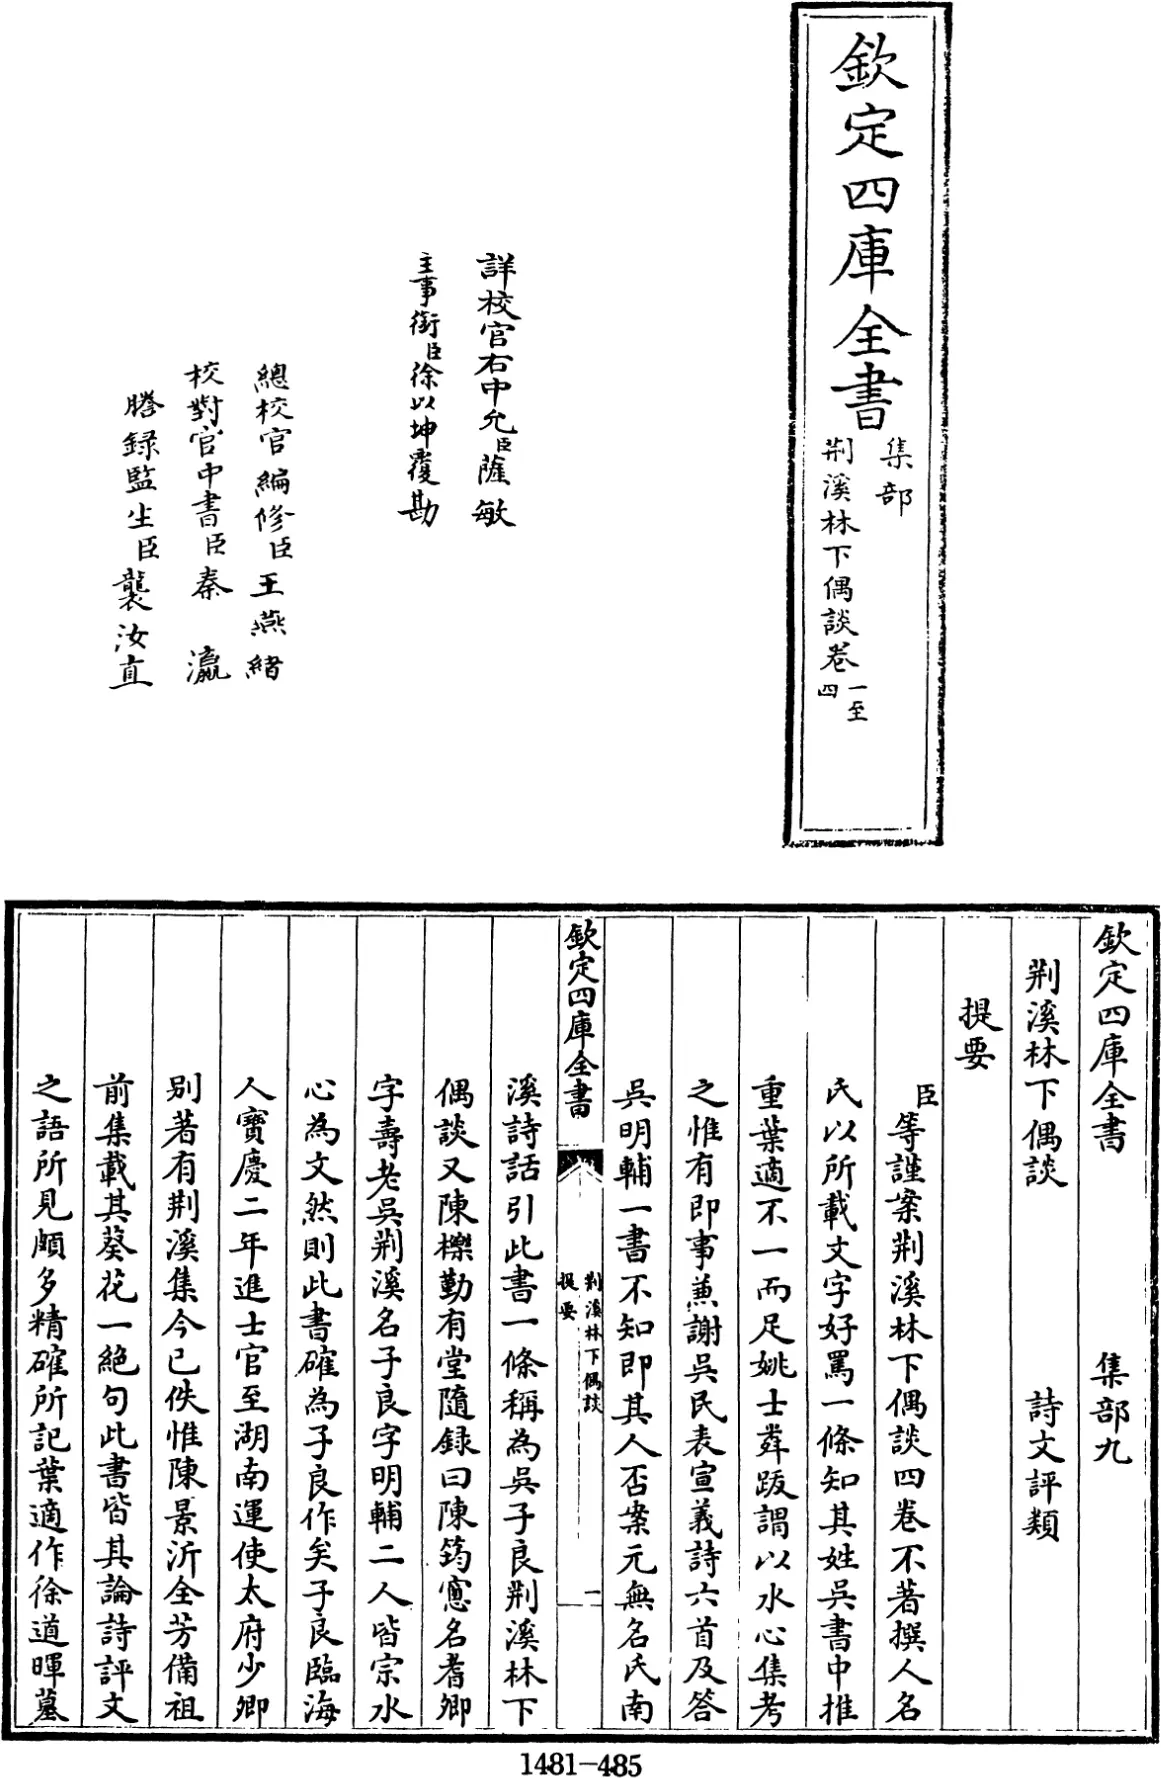 欽定四庫全書
集部
荆溪林下偶談卷一至四
詳校官右中允臣薩敏
主事銜臣徐以坤覆勘
總校官編修臣王燕緒
校對官中書臣秦瀛
謄録監生臣襲汝直
欽定四庫全書　集部九
荆溪林下偶談　詩文評類
提要
臣等謹案荆溪林下偶談四卷不著撰人名
氏以所載文字好罵一條知其姓吳書中推
重葉適不一而足姚士粦跋謂以水心集考
之惟有即事兼謝吳民表宣義詩六首及答
吳明輔一書不知即其人否案元無名氏南
欽定四庫全書
荆溪林下偶談
提要
一
溪詩話引此書一條稱為吳子良荆溪林下
偶談又陳櫟勤有堂隨録曰陳筠窻名耆卿
字壽老吳荆溪名子良字明輔二人皆宗水
心為文然則此書確為子良作矣子良臨海
人寶慶二年進士官至湖南運使太府少卿
别著有荆溪集今已佚惟陳景沂全芳備祖
前集載其葵花一絶句此書皆其論詩評文
之語所見頗多精確所記葉適作徐道暉墓
1481-485